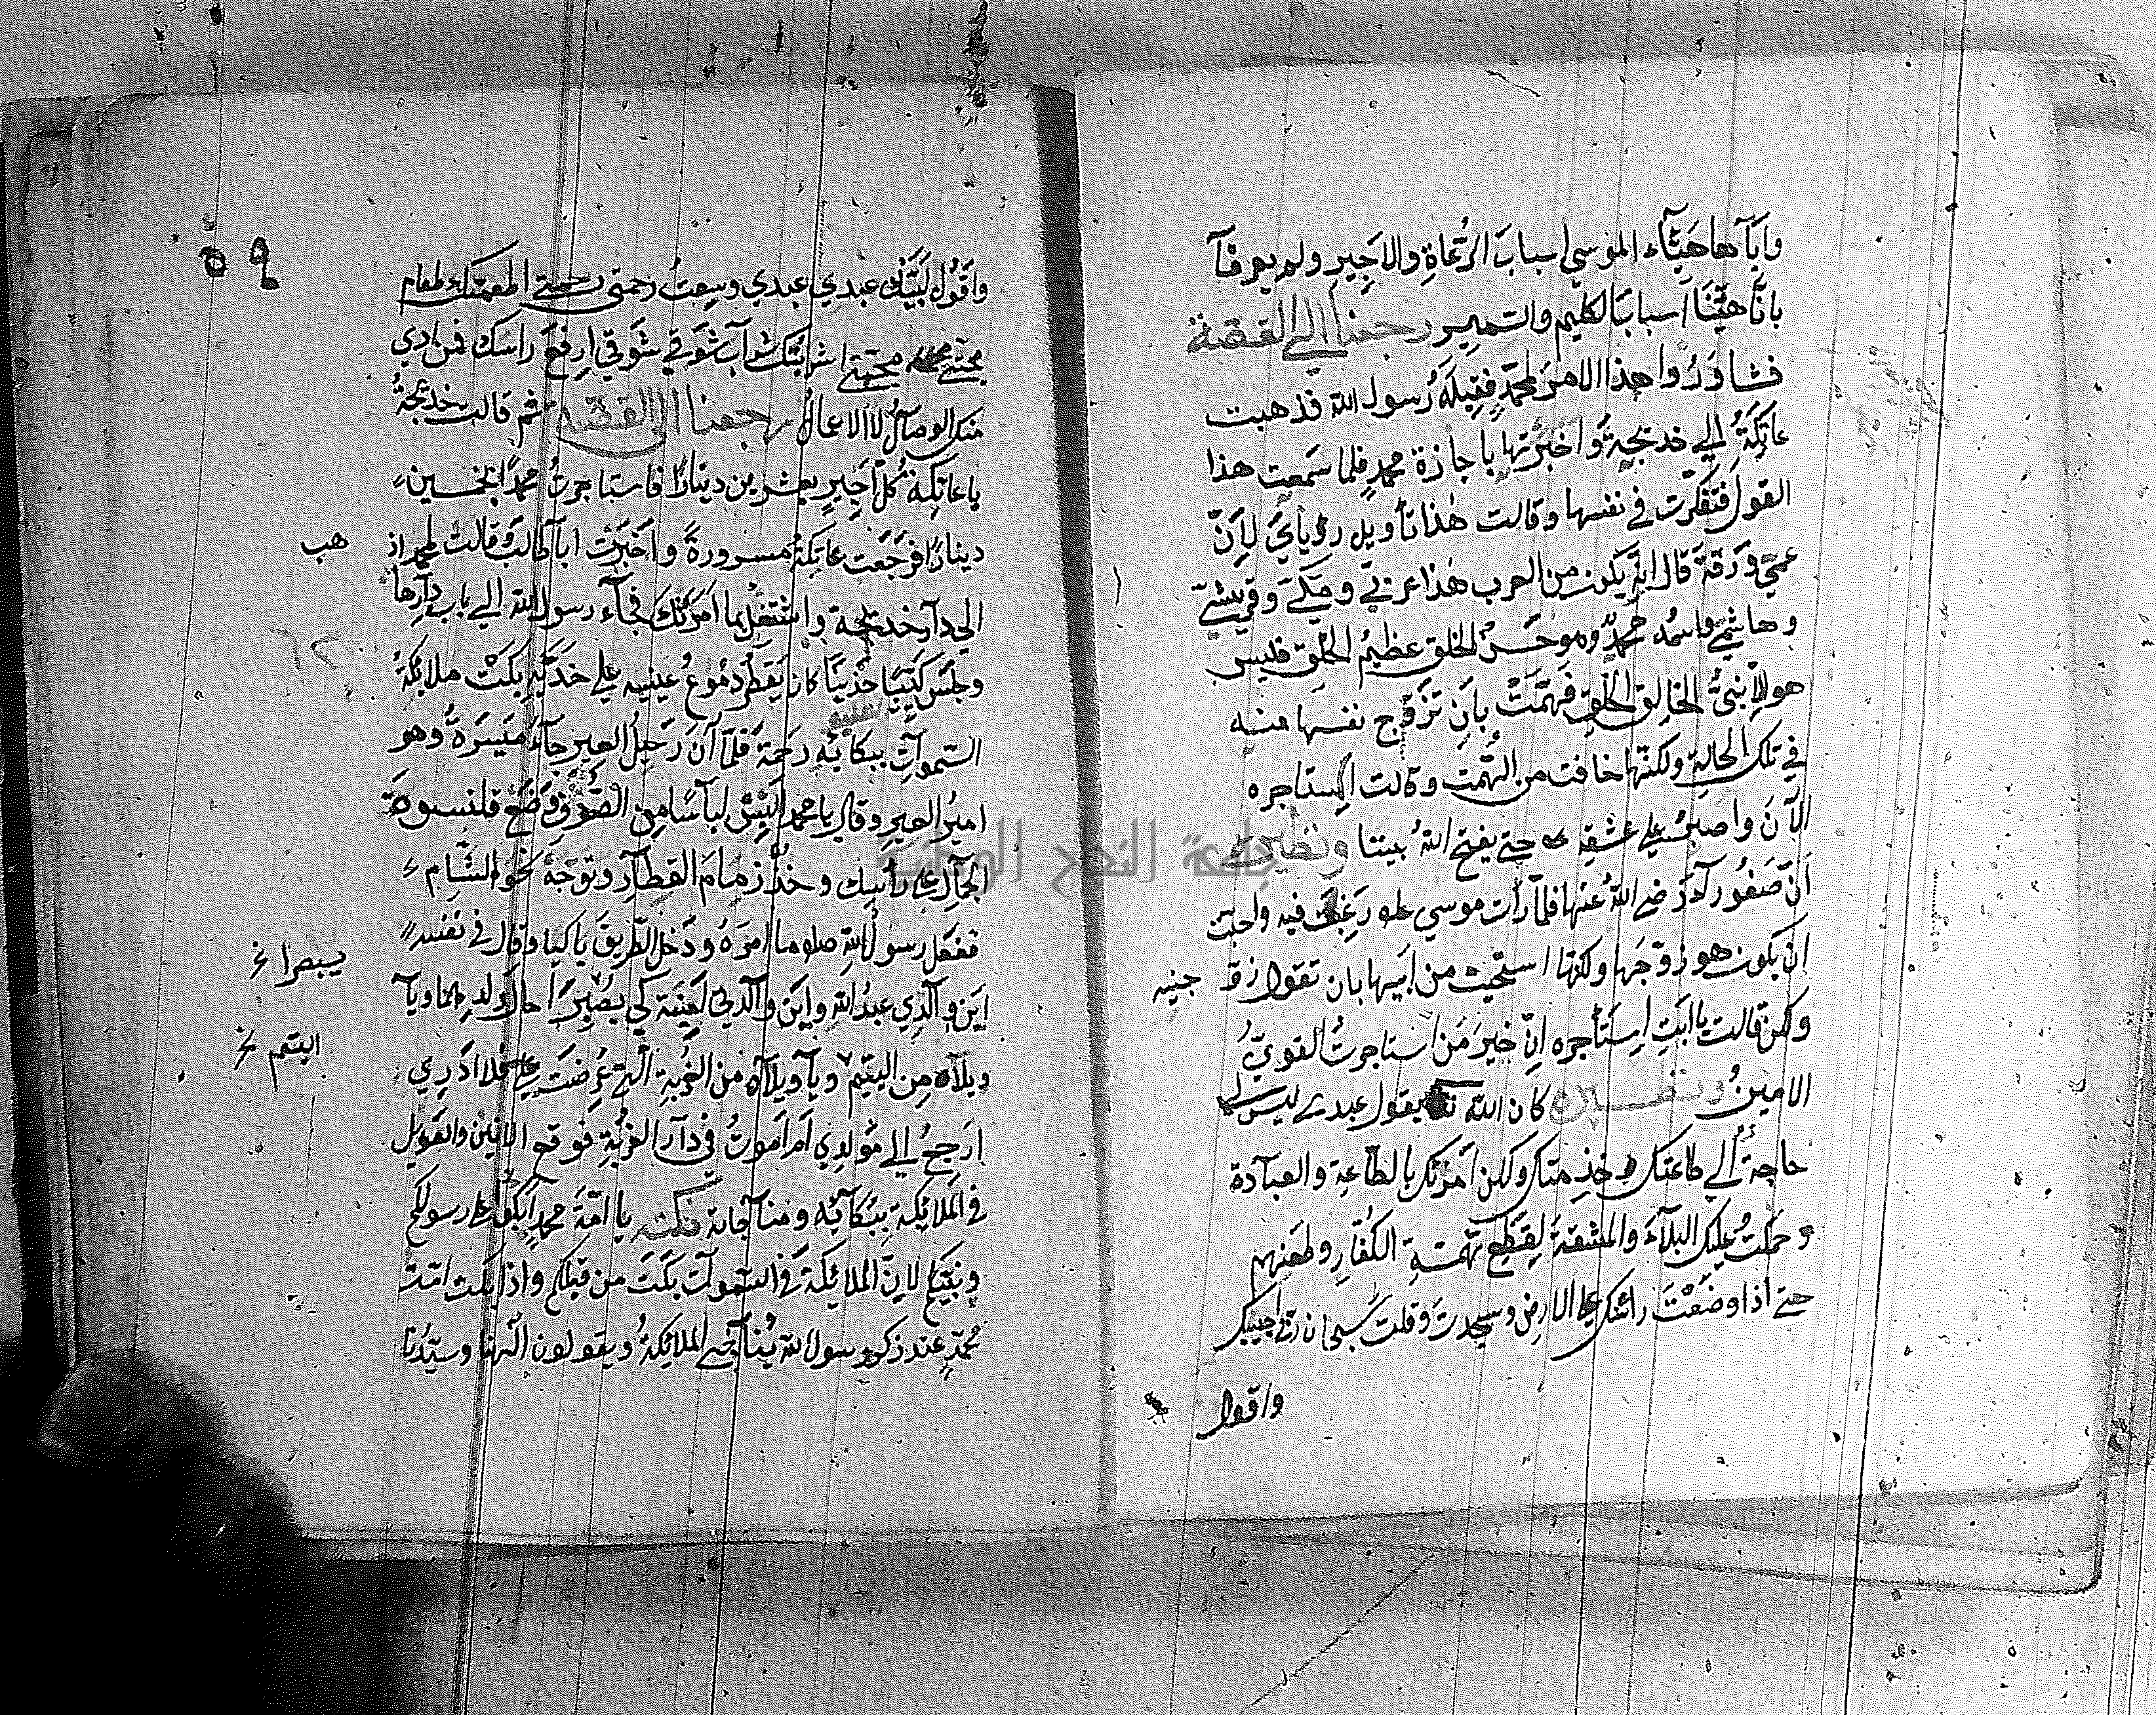 واباها هيئاء الموسي اسباب الرعاة والاجير ولم يعرفا
بانا هيئنا اسباب الكليم والسمير رجعنا الي القصة
فشاوروا هذا الامر لمحمد فقبله رسول الله فذهبت
عاتكة الي خديجة واخبرتها باجازة محمد فلما سمعت هذا
القول فتفكرت في نفسها وقالت هذا تأويل رؤياي لان
عمي ورقة قال انه يكون من العرب هذا عربي ومكي وقريشي
وهاشمي واسمه محمد وهو حسن الخلق عظيم الخلق فليس
هو الا نبي الخالق الخلق فهمت بان تزوج نفسها منه
في تلك الحالة ولكنها خافت من التهمت وقالت استاجره
الآن واصبر علي عشقه حتي يفتح الله بيننا ونظيره
ان صفورآء رضي الله عنها فلما رأت موسي عليه رغبت فيه واحبت
ان يكون هو زوجها ولكنها استحيت من ابيها بان تقول زو جنيه
ولكن قالت يا ابت استأجره ان خير من استاجرت القوي
الامين ونظيره كان الله تعا يقول عبدي ليس لي
حاجة الي طاعتك وخذمتك ولكن امرتك بالطاعة والعبادة
وحملت عليك البلآء والمشقة لقطع تهمة الكفار وطعنهم
حتي اذا وضعت رأسك علي الارض وسجدت وقلت سبحان ربي اجيبك
واقول
٥٩
واقول لبيك عبدي عبدي وسعت رحمتي رحمتي اطعمتك طعام
محبتي محبتي اشربتك شراب شوقي شوقي ارفع راسك فمرادي
منك الوصال لا الاعمال رجعنا الي القصة ثم قالت خديجة
يا عاتكة كل اجير بعشرين دينارا فاستاجرت محمدا بخمسين
دينارا فرجعت عاتكة مسرورة واخبرت ابا طالب وقالت لمحمد اذ هب
الي دار خديجة واشتغل بما امرتك فجآء رسول الله الي باب دارها
وجلس كئيبا حزينا كان يقطر دموع عينيه علي خديه بكت ملائكة
السموات ببكائه رحمة فلما آن رحيل العير جآء ميسرة وهو
امير العير وقال يا محمد البس لباسا من الصوف وضع قلنسوة
الجمال علي رأسك وخذ زمام القطار وتوجه نحو الشام
ففعل رسول الله صلعم ما امره ودخل الطريق باكيا وقال في نفسه
اين والدي عبد الله واين والدتي امنة كي يبصرا حال ولدهما ويا
يبصرا خ
ويلاه من اليتم ويا ويلاه من الغربة التي عرضت علي فلا ادري
اليتم خ
ارجع الي مولدي ام اموت في دار الغربة فوقع الانين والعويل
في الملائكة ببكائه ومناجاته نكتة يا امة محمد ابكوا علي رسولكم
ونبيكم لان الملائكة في السموات بكت من قبلكم واذا بكت امة
محمد عند ذكر رسول الله يناجي الملائكة ويقولون الهنا وسيدنا
جامعة النجاح الوطنية